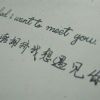 I want to meet you.
相对我想遇见你